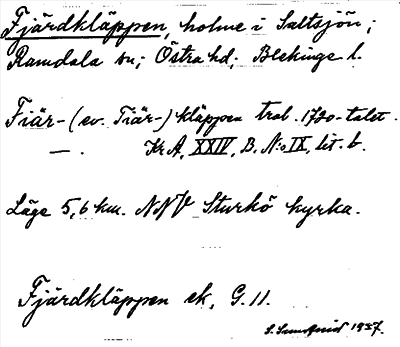 Fjärdkläppen, holme i Saltsjön;
Ramdala sn; Östra hd; Blekinge l.
Fiär- (ev. Tiär-) kläppen trol. 1720-talet.
— . Kr A, XXIV, B. N:o IX, lit. b.
Läge 5,6 km. NNV Sturkö kyrka.
Fjärdkläppen ek. G. 11.
S. Sundquist 1937.